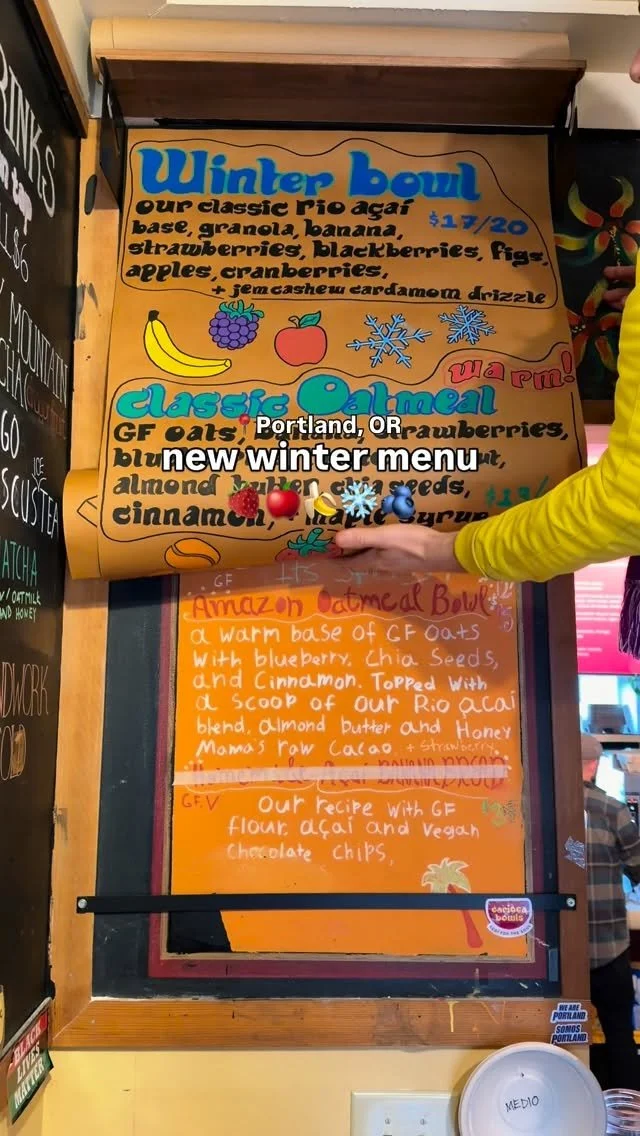 RINKS
$6
MOUNTAIN
CHA
GO
ICE
SCUS TEA
MATCHA
W/ OATMILK
AND HONEY
DWORK
COLD
Winter bowl
our classic rio açaí
$17/20
base, granola, banana,
strawberries, blackberries, figs,
apples, cranberries,
+ jem cashew cardamom drizzle
warm!
Classic Oatmeal
Portland, OR
GF oats, banana, strawberries,
new winter menu
almond butter, chia seeds,
cinnamon, + maple syrup
GF
Amazon Oatmeal Bowl
a warm base of GF oats
with blueberry, Chia Seeds,
and Cinnamon. Topped with
a scoop of our Rio açaí
blend, almond butter and Honey
Mama's raw Cacao. + Strawberry.
Homemade Açaí BANANA BREAD
GF, V
Our recipe with GF
flour, açaí and vegan
chocolate chips,
carioca
bowls
WE ARE
PORTLAND
SOMOS
PORTLAND
BLACK
LIVES
MATTER
MEDIO